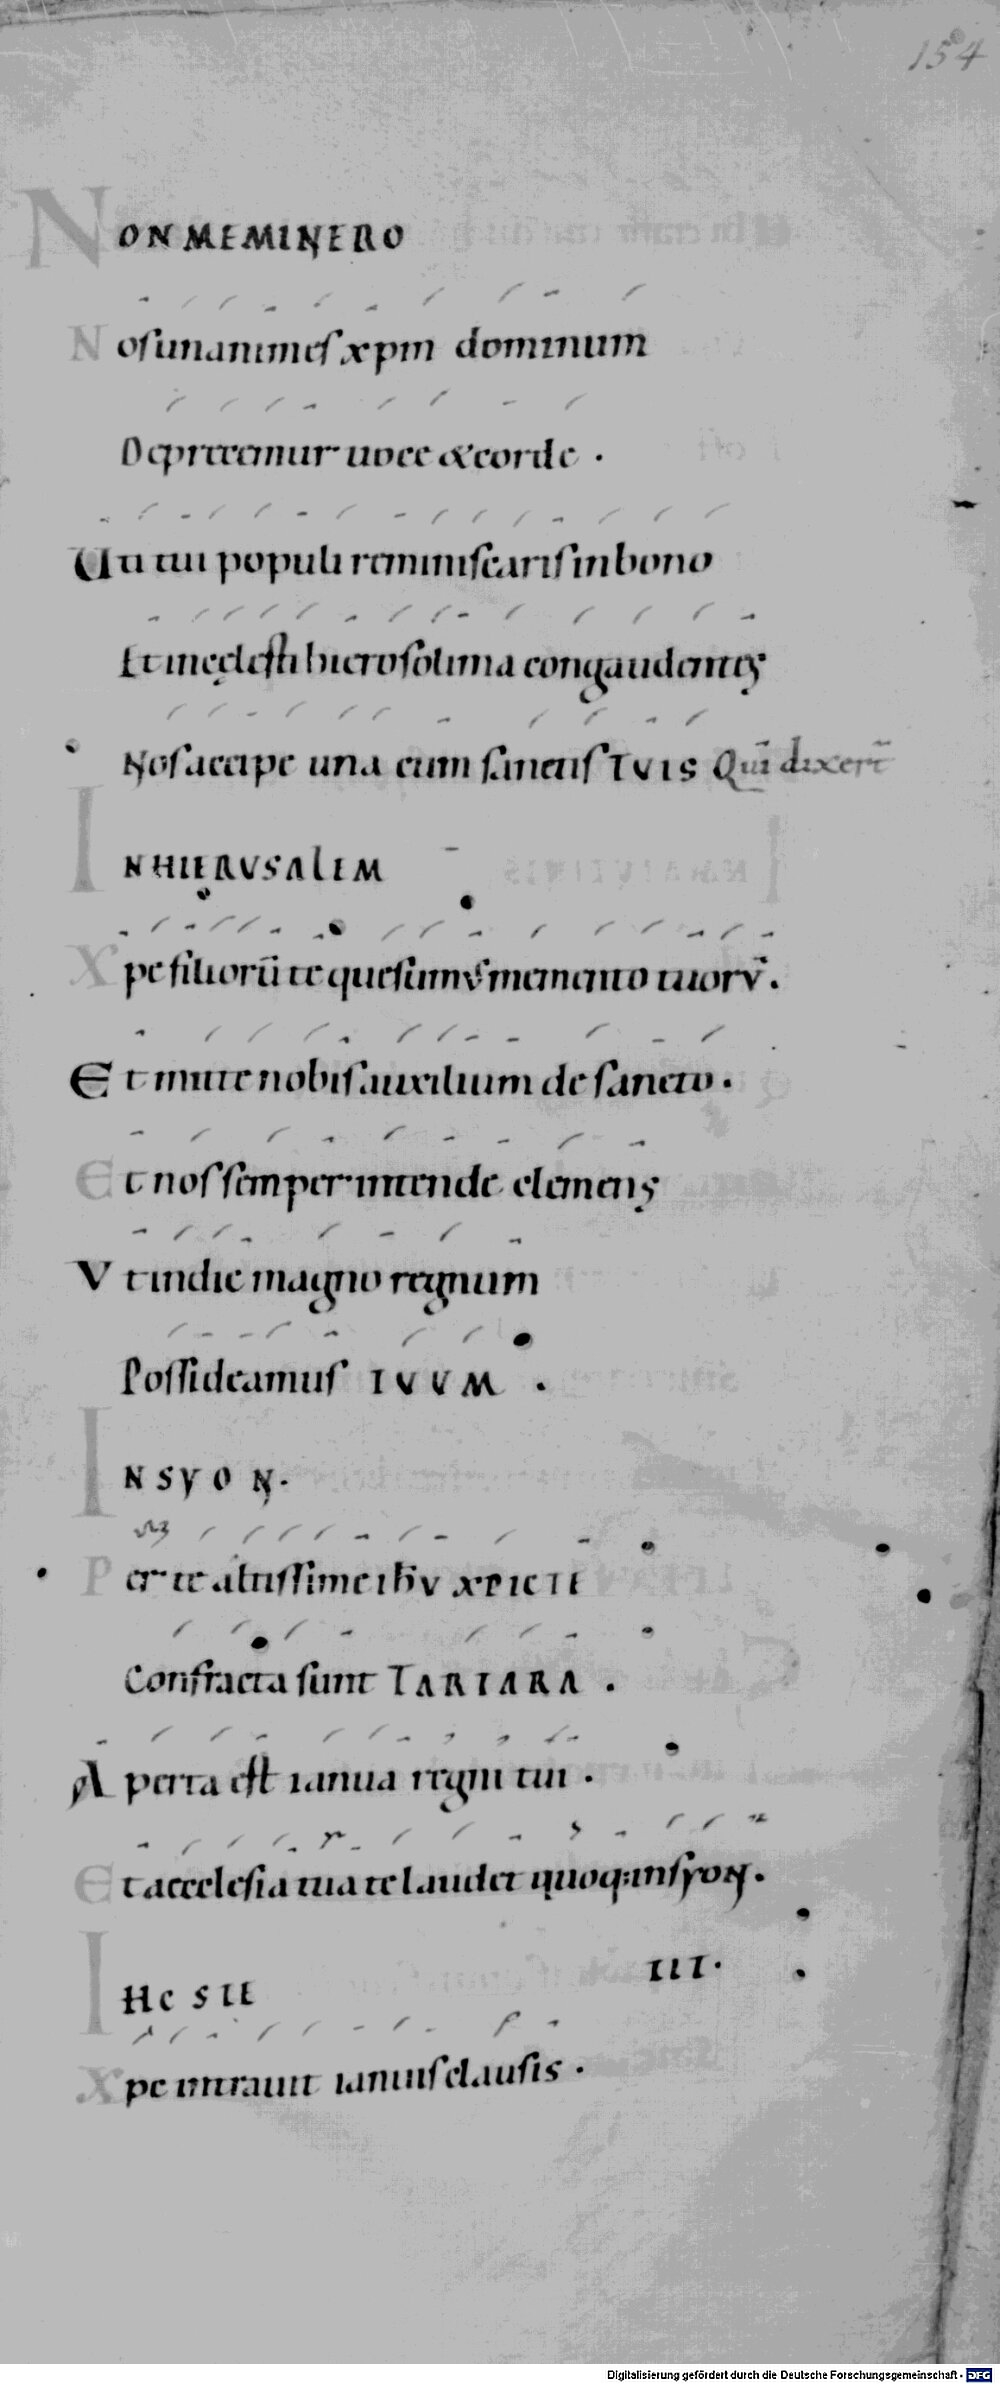 154
NON MEMINERO
Nos unanimes xpm dominum
Deprecemur uoce & corde .
Uti tui populi reminiscaris in bono
Et in cęlesti hierosolima congaudentes
Nos accipe una cum sanctis TVIS Qui dixert̄
IN HIERVSALEM
Xpe filiorū te quesumus memento tuorv̄ .
Et mitte nobis auxilium de sancto .
Et nos semper intende clemens
Vt in die magno regnum
Possideamus TVVM .
IN SYON .
Per te altissime ihv XPICTE
Confracta sunt TARTARA .
Aperta est ianua regni tui .
Et aecclesia tua te laudet quoq; in syon .
IHC STE III .
Xpe intrauit ianuis clausis .
Digitalisierung gefördert durch die Deutsche Forschungsgemeinschaft - DFG